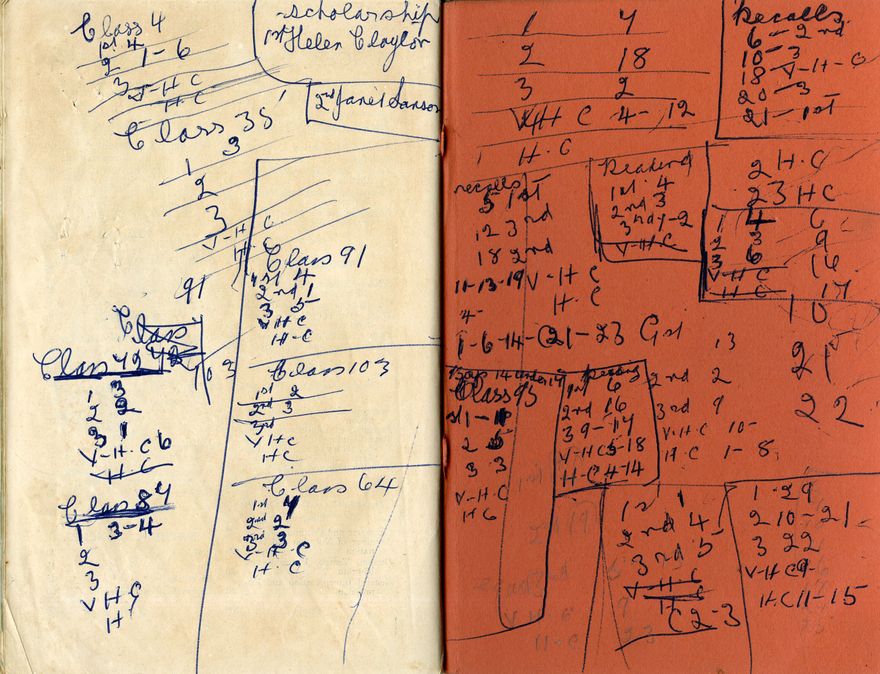 Class 4
1st 4
2 1-6
3
V-HC
HC
Scholarship
1st Helen Claylor
2nd Janet Sanson
Class 35
1 3
2
3
V-H C
H-C
91
Class 91
1st 4
2nd 1
3 5
VHC
H-C
Class
Class 42
1 3
2 2
3 1
V-H-C 6
H C
103
Class 103
1st 2
2nd 3
3rd
VHC
HC
Class 84
1 3-4
2
3
V H C
H
Class 64
1st 4
2nd 2
3rd 3
V-H-C
H-C
1 4
2 18
3 2
VH C 4-,12
H-C
Recalls
6-2nd
10-3
18-V-H-C
20-3
21-1st
recalls
5 1st
12 3rd
18 2nd
11-13-19 V-H C
H-C
1st 4
2nd 3
3rd 4-2
V-H-C
2 H.C
23 HC
1 4 6
2 3 9
3 6 16
V-HC 17
H C 10
4-
1-6-14-(21-23 Gst 13
21
22
Class 93
1st 1-
2 5
3 3
V-H-C
H C
1st 6
2nd 16
3 9-14
V-HC 5-18
H-C 4-14
2nd 2
3rd 9
V-H-C 10-
H-C 1-8
1st 1
2nd 4
3rd 5
V-H C
H C
C 2-3
1-29
2 10-21
3 22
V-H C 9-
H.C 11-15